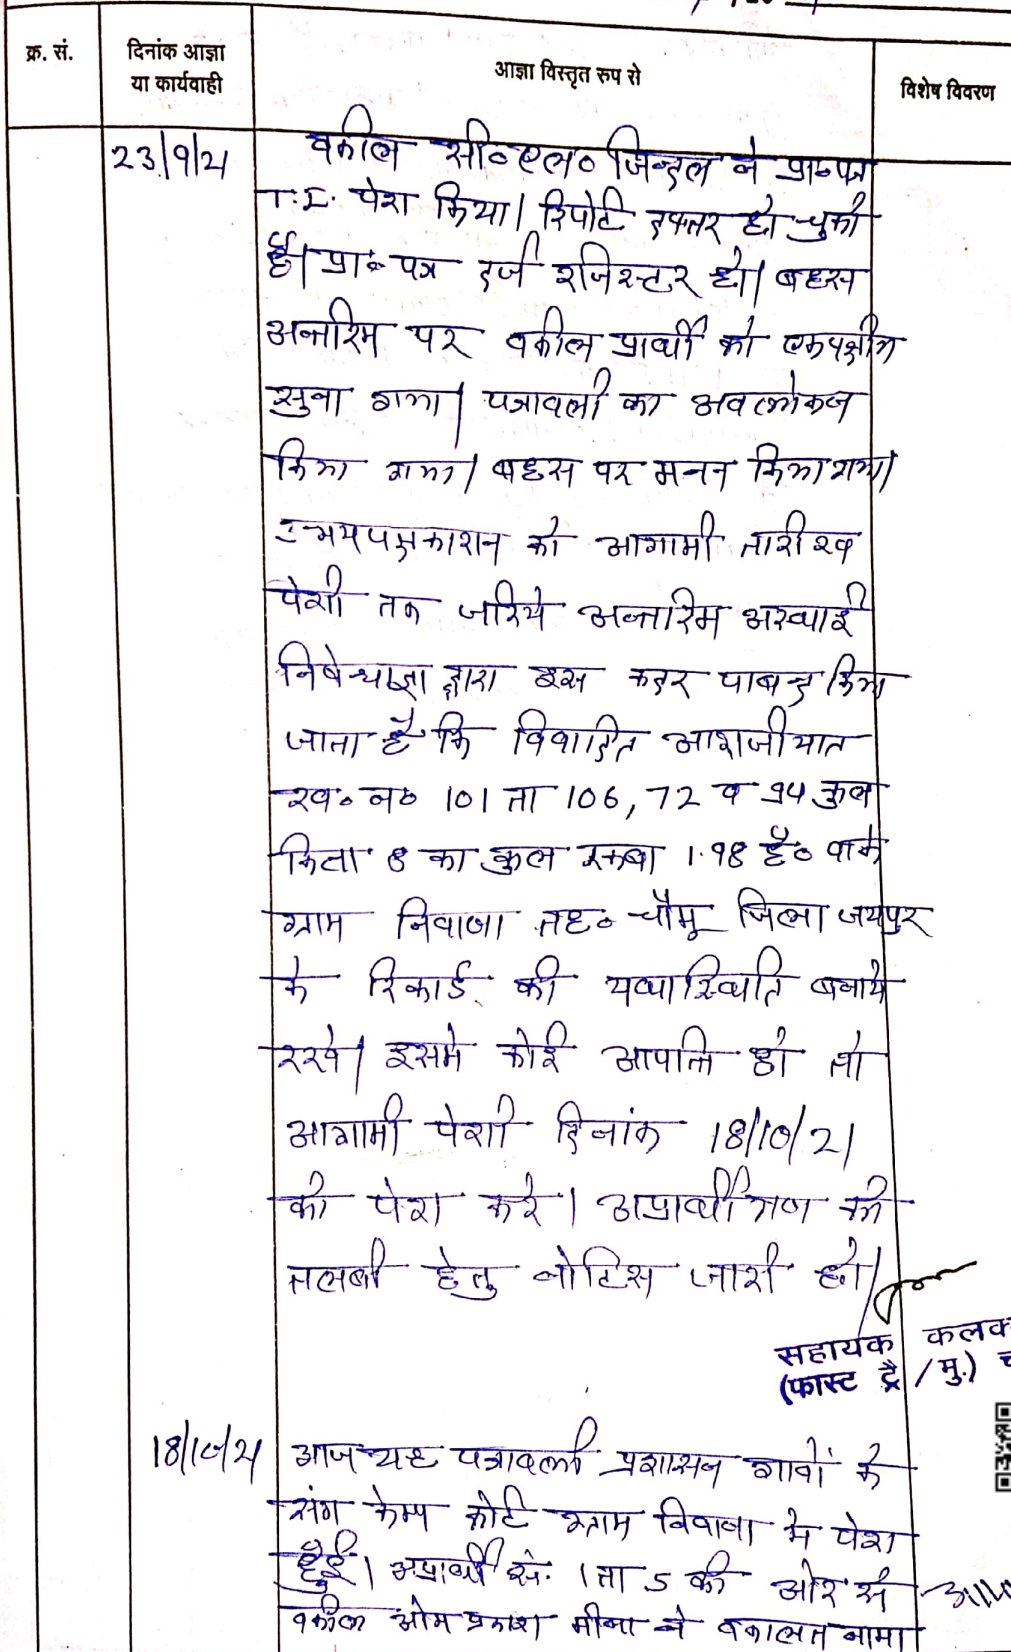 क्र. सं.
दिनांक आज्ञा
या कार्यवाही
आज्ञा विस्तृत रुप से
विशेष विवरण
23/9/21
वकील सी०एल० जिन्दल ने प्रा०पत्र
T.I. पेश किया। रिपोर्ट दफ्तर हो चुकी
है। प्रा० पत्र दर्ज रजिस्टर हो। बहस
अन्तरिम पर वकील प्रार्थी को एकपक्षीय
सुना गया। पत्रावली का अवलोकन
किया गया। बहस पर मनन किया गया।
उभयपक्षकारान को आगामी तारीख
पेशी तक जरिये अन्तरिम अस्थाई
निषेधाज्ञा द्वारा इस कदर पाबन्द किया
जाता है कि विवादित आराजीयात
ख० न० 101 ता 106, 72 व 94 कुल
किता 8 का कुल रकबा 1.98 है० वाके
ग्राम निवाणा तह० चौमू जिला जयपुर
के रिकार्ड की यथास्थिति बनाये
रखे। इसमे कोई आपत्ति हो तो
आगामी पेशी दिनांक 18/10/21
को पेश करे। अप्रार्थीगण की
तलबी हेतु नोटिस जारी हो।
सहायक कलक
(फास्ट ट्रै /मु.) च
18/10/21
आज यह पत्रावली प्रशासन गावों के
संग केम्प कोर्ट ग्राम निवाणा मे पेश
हुई। अप्रार्थी सं. 1 ता 5 की ओर से
वकील ओम प्रकाश मीना ने वकालत नामा